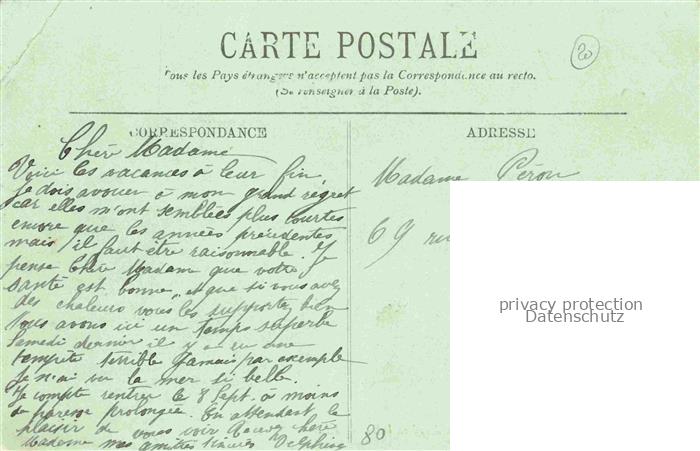 20
CARTE POSTALE
Tous les Pays étrangers n'acceptent pas la Correspondance au recto.
(Se renseigner à la Poste).
CORRESPONDANCE
Chère Madame
Voici les vacances à leur fin,
je dois avouer à mon grand regret
car elles m'ont semblées plus courtes
encore que les années précédentes
mais il faut être raisonnable. Je
pense Chère Madame que votre
santé est bonne, et que si vous avez
des chaleurs vous les supportez bien
Nous avons ici un temps superbe
Samedi dernier il y a eu une
tempête terrible Jamais par exemple
je n'ai vu la mer si belle.
Je compte rentrer le 8 Sept. à moins
de paresse prolongée. En attendant le
plaisir de vous voir Recevez chère
Madame mes amitiés sincères Delphine
ADRESSE
Madame Péron
69 ru
privacy protection
Datenschutz
80